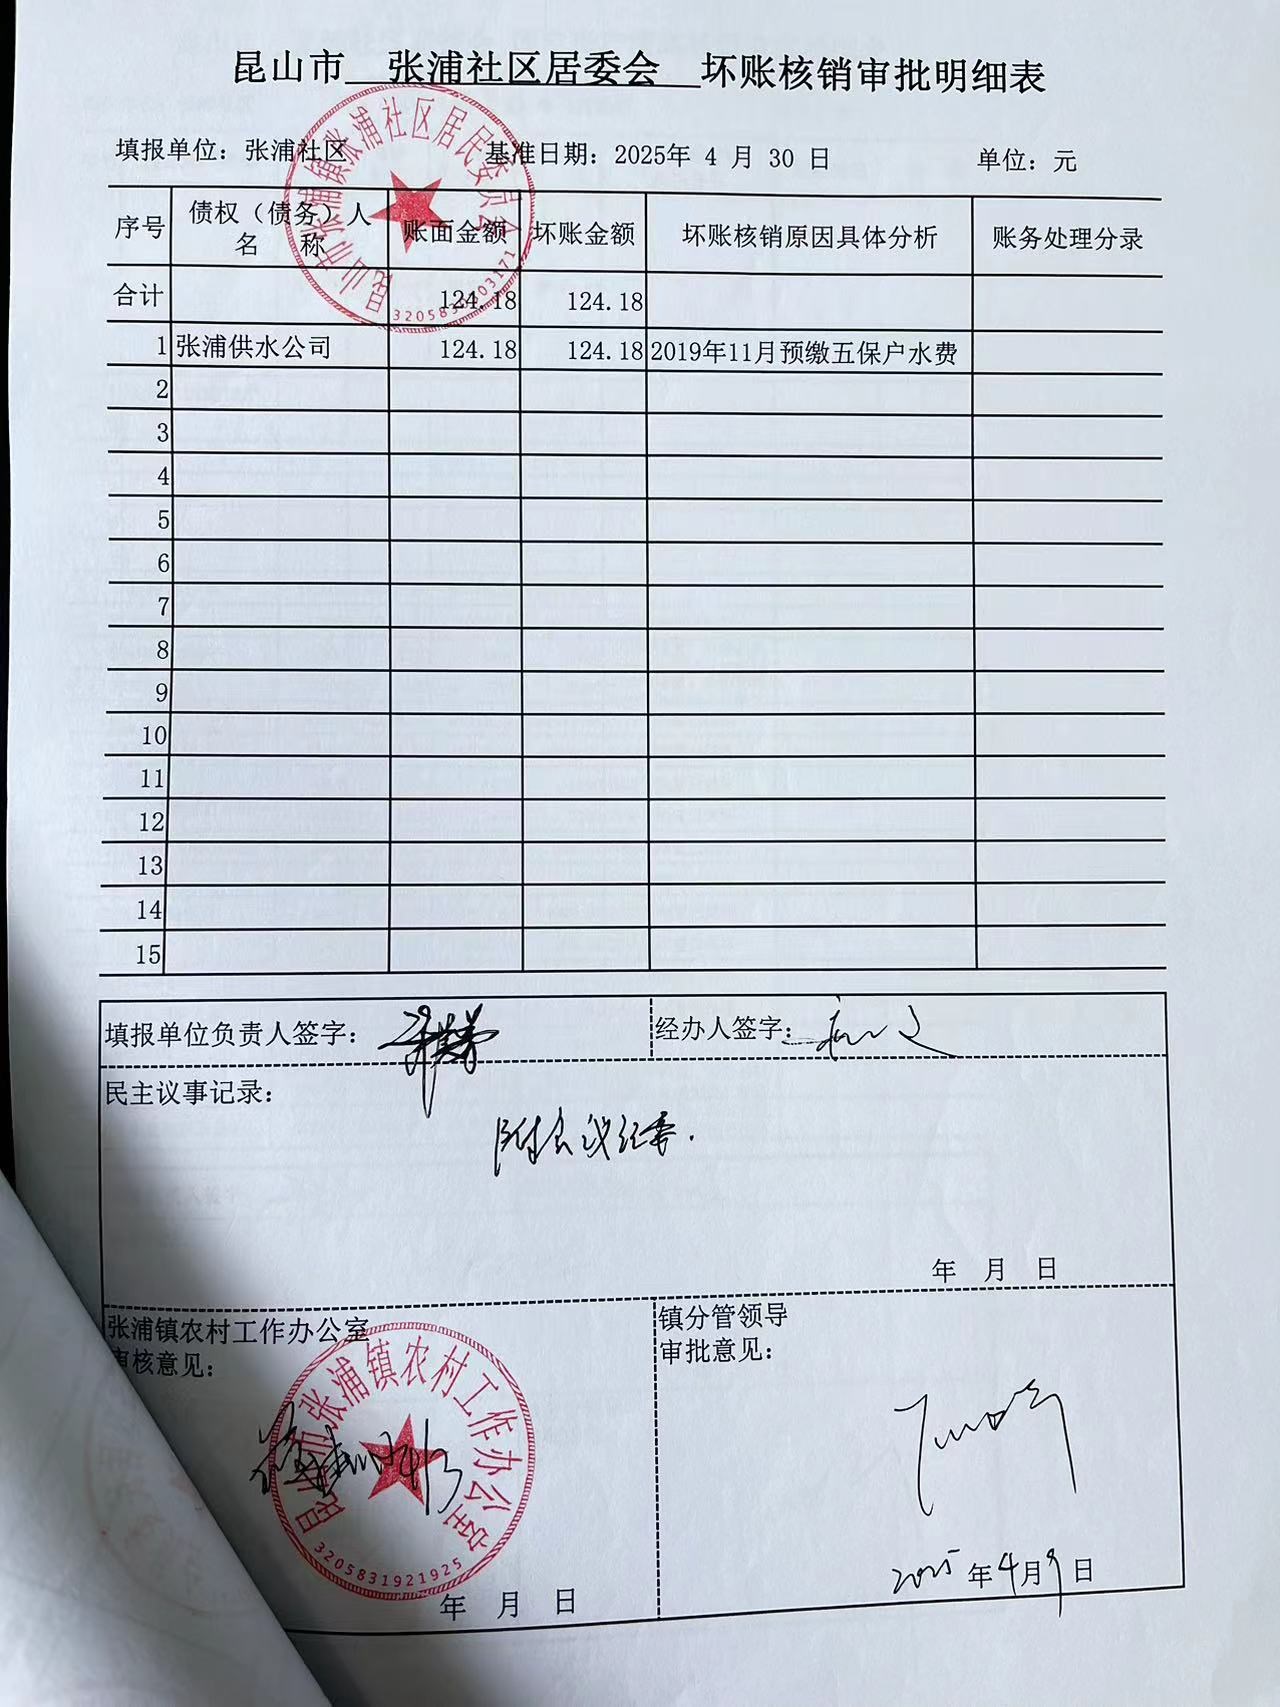 昆山市 张浦社区居委会 坏账核销审批明细表
填报单位：张浦社区 基准日期：2025年 4 月 30 日 单位：元
序号 债权（债务）人名 称 账面金额 坏账金额 坏账核销原因具体分析 账务处理分录
合计 124.18 124.18
1 张浦供水公司 124.18 124.18 2019年11月预缴五保户水费
2
3
4
5
6
7
8
9
10
11
12
13
14
15
昆山市张浦镇张浦社区居民委员会
填报单位负责人签字： 经办人签字：
民主议事记录：
附会议纪要.
年 月 日
张浦镇农村工作办公室
审核意见：
昆山市张浦镇农村工作办公室
3205831921925
年 月 日
镇分管领导
审批意见：
2025年4月9日